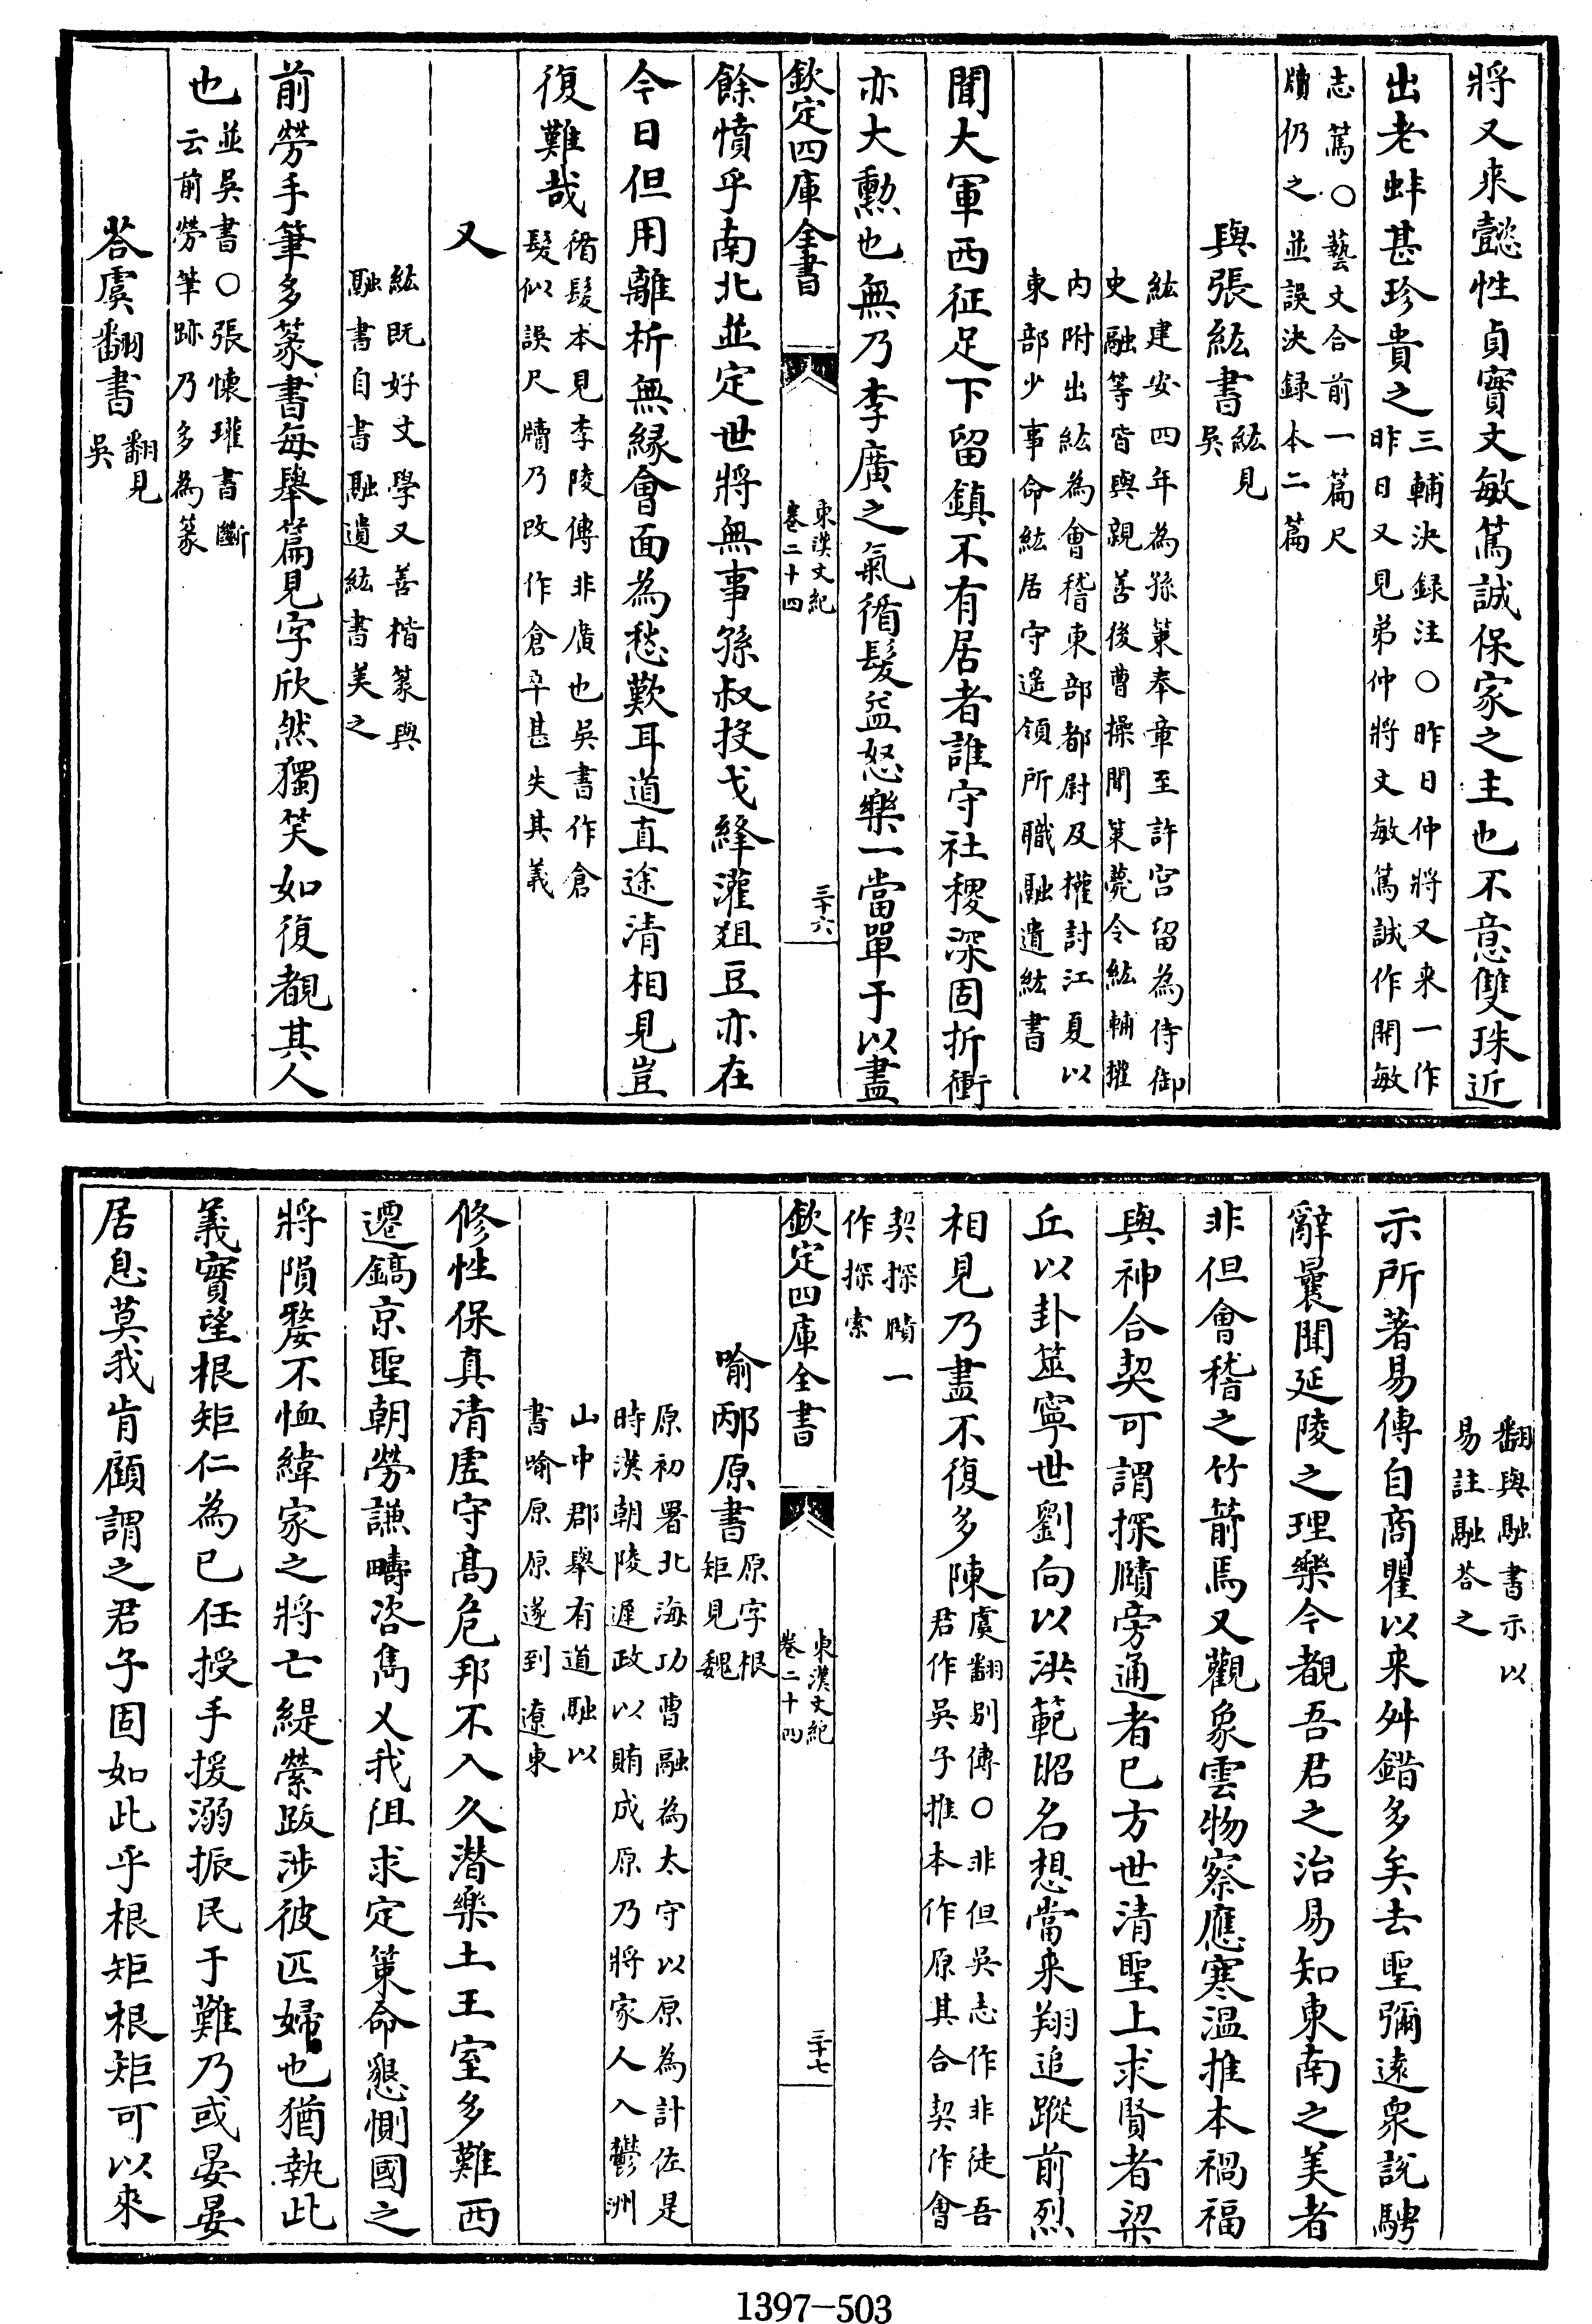 將又來懿性貞實文敏篤誠保家之主也不意雙珠近
出老蚌甚珍貴之三輔決録注○昨日仲將又来一作
昨日又見弟仲將文敏篤誠作開敏
志篤○藝文合前一篇尺
牘仍之並誤決録本二篇
與張紘書紘見
吳
紘建安四年為孫策奉章至許宫留為侍御
史融等皆與親善後曹操聞策薨令紘輔權
内附出紘為會稽東部都尉及權討江夏以
東部少事命紘居守遥領所職融遺紘書
聞大軍西征足下留鎮不有居者誰守社稷深固折衝
亦大勲也無乃李廣之氣循髮益怒樂一當單于以盡
欽定四庫全書
東漢文紀
卷二十四
三十六
餘憤乎南北並定世將無事孫叔投戈絳灌俎豆亦在
今日但用離析無縁會面為愁歎耳道直途清相見豈
復難哉循髮本見李陵傳非廣也吳書作倉
髮似誤尺牘乃改作倉卒甚失其義
又
紘既好文學又善楷篆與
融書自書融遺紘書美之
前勞手筆多篆書每舉篇見字欣然獨笑如復覩其人
也並吳書○張懷瓘書斷
云前勞筆跡乃多為篆
荅虞翻書翻見
吳
翻與融書示以
易註融荅之
示所著易傳自商瞿以来舛錯多矣去聖彌遠衆說騁
辭曩聞延陵之理樂今覩吾君之治易知東南之美者
非但會稽之竹箭焉又觀象雲物察應寒温推本禍福
與神合契可謂探賾旁通者已方世清聖上求賢者梁
丘以卦筮寧世劉向以洪範昭名想當来翔追蹤前烈
相見乃盡不復多陳虞翻别傳○非但吳志作非徒吾
君作吳子推本作原其合契作會
契探賾一
作探索
欽定四庫全書
東漢文紀
卷二十四
三十七
喻邴原書原字根
矩見魏
原初署北海功曹融為太守以原為計佐是
時漢朝陵遲政以賄成原乃將家人入鬱洲
山中郡舉有道融以
書喻原原遂到遼東
修性保真清虚守高危邦不入久潜樂土王室多難西
遷鎬京聖朝勞謙疇咨雋乂我徂求定策命懇惻國之
將隕嫠不恤緯家之將亡緹縈跋涉彼匹婦也猶執此
義實望根矩仁為已任授手援溺振民于難乃或晏晏
居息莫我肯顧謂之君子固如此乎根矩根矩可以來
1397—503